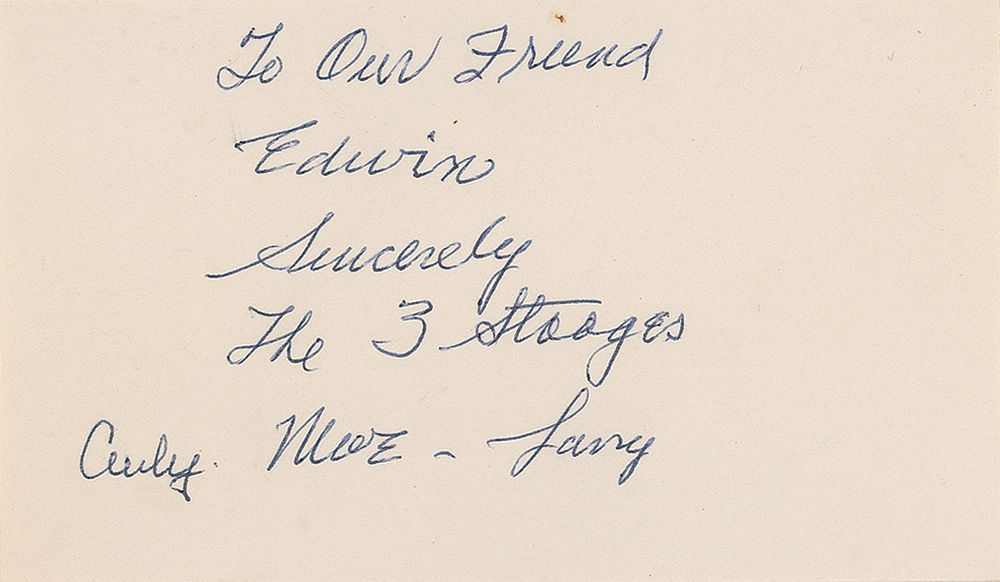 To Our Friend
Edwin
Sincerely
The 3 Stooges
Curly. Moe - Larry